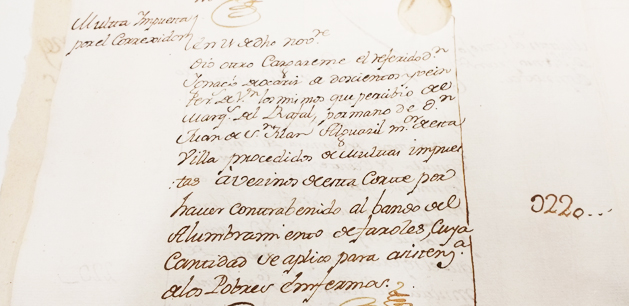 Multa Impuesta
por el Correxidor
En 21 de dho nov.re
Dio otro Cargareme el referido d.n
Ignacio de a doscientos y vein
te r.s de V.n los mismos que percibio del
Marq.s del Rafal, por mano de d.n
Juan de S.n Alguazil m.or de esta
Villa procedidos de Multas impues
:tas à vezinos de esta Corte por
haver contrabenido al bando del
Alumbramiento de faroles, Cuya
Cantidad se aplico para asisten.a
de los Pobres Enfermos.
D220...